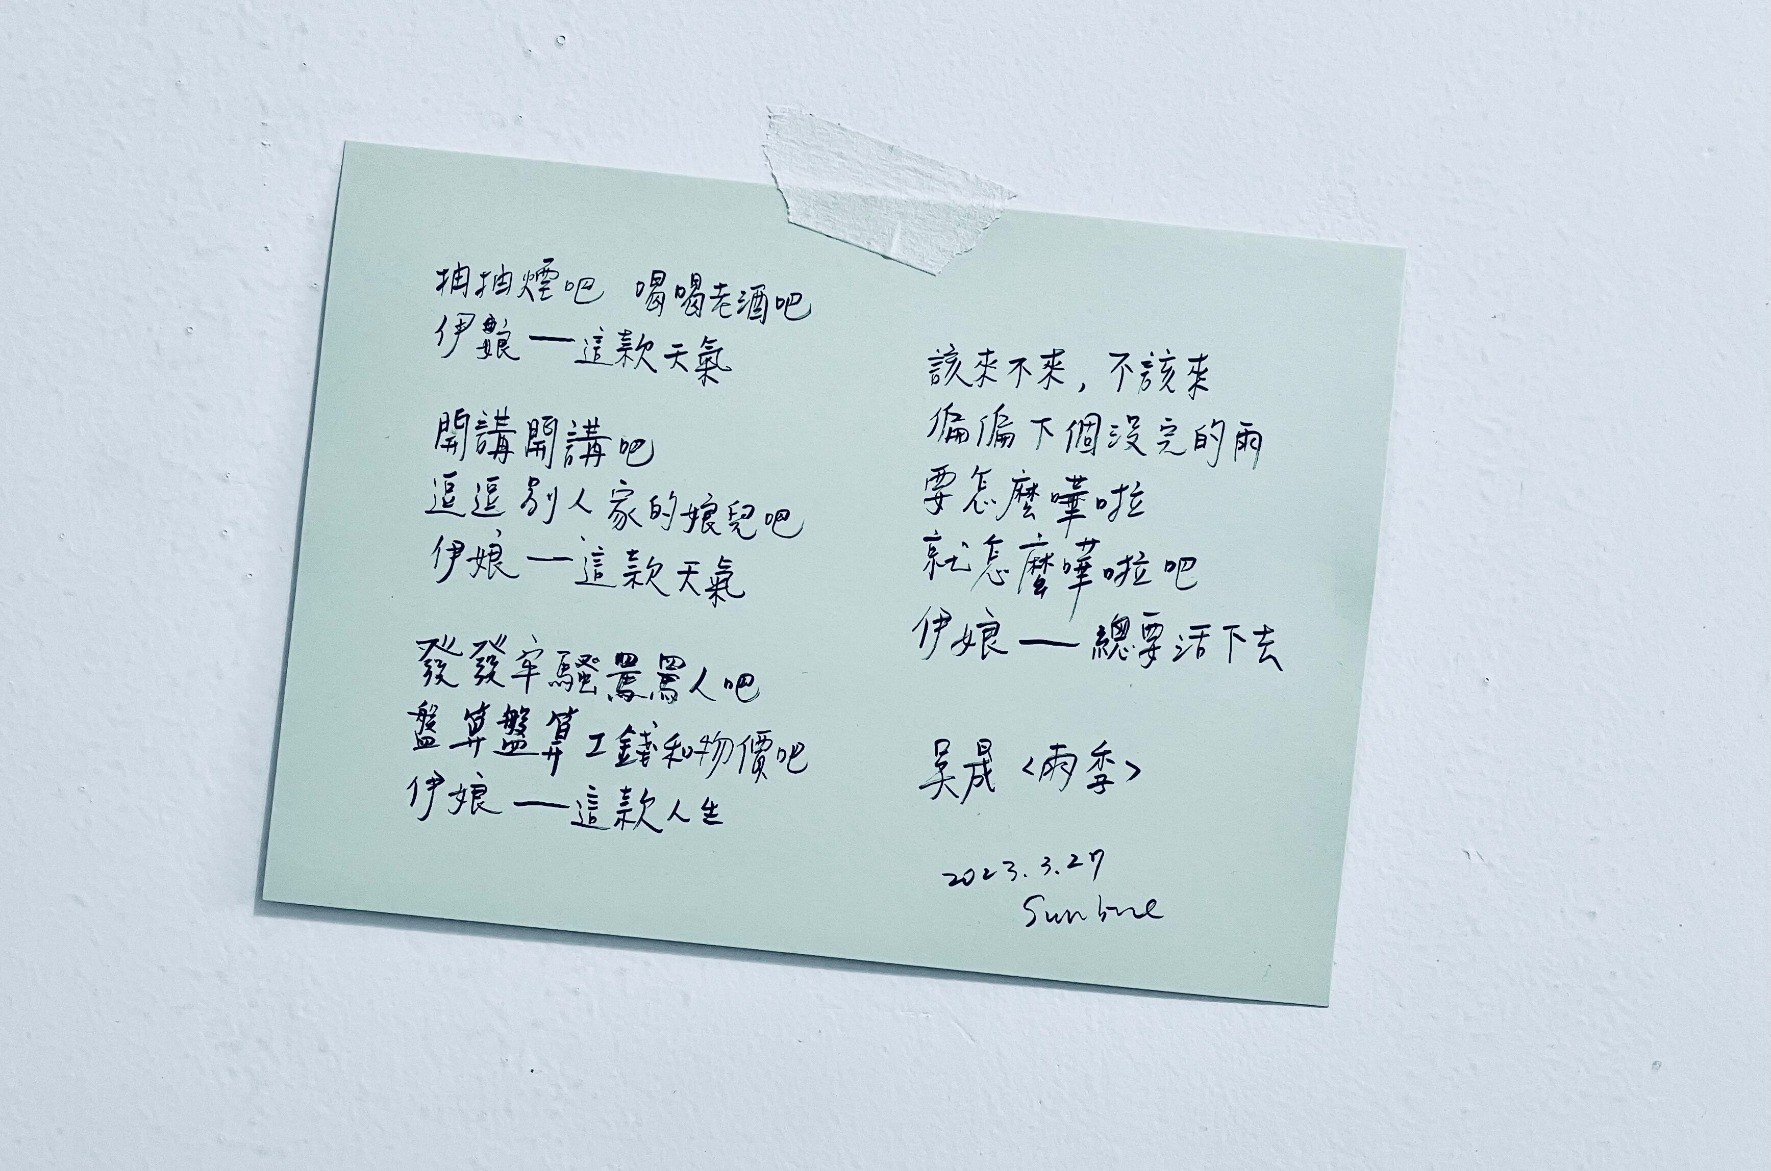 抽抽煙吧 喝喝老酒吧
伊娘——這款天氣
開講開講吧
逗逗別人家的娘兒吧
伊娘——這款天氣
發發牢騷罵罵人吧
盤算盤算工錢和物價吧
伊娘——這款人生
該來不來,不該來
偏偏下個沒完的雨
要怎麼嘩啦
就怎麼嘩啦吧
伊娘——總要活下去
吳晟〈雨季〉
2023.3.27